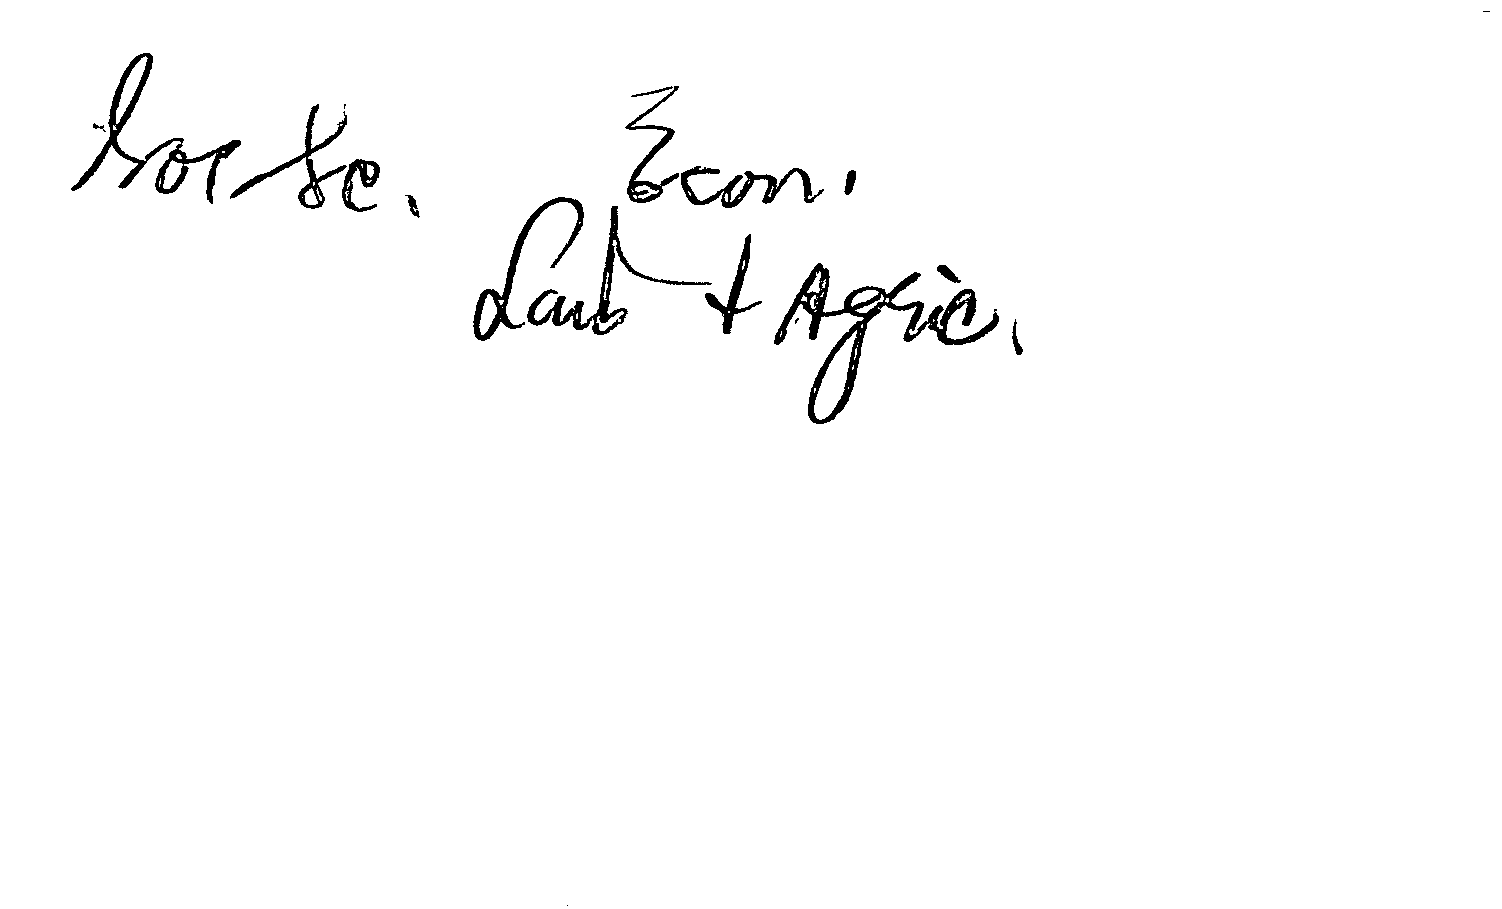 Soc Sc. Econ.
Land & Agric.